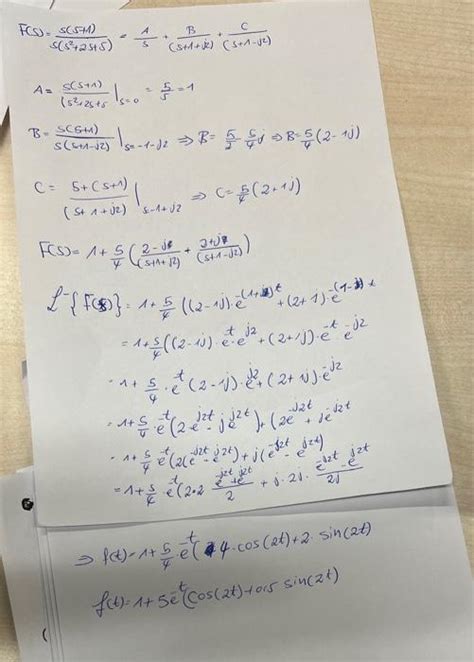 F(s) = 5(s+1) / s(s²+2s+5) = A/s + B/(s+1+j2) + C/(s+1-j2)
A = 5(s+1) / (s²+2s+5 |s=0 = 5/5 = 1
B = 5(s+1) / s(s+1-j2) |s=-1-j2 ⇒ B = 5/2 - 5/4 j ⇒ B = 5/4 (2-1j)
C = 5+(s+1) / (s+1+j2) |s-1+j2 ⇒ C = 5/4 (2+1j)
F(s) = 1 + 5/4 ( 2-j / (s+1+j2) + 2+j / (s+1-j2) )
L⁻{F(s)} = 1 + 5/4 ((2-1j)·e^-(1+ )t + (2+1)·e^-(1- )t
= 1 + 5/4 ((2-1j)·e^-t·e^j2 + (2+1j)·e^-t·e^-j2
= 1 + 5/4 · e^-t (2-1j)·e^j2 + (2+1j)·e^-j2
= 1 + 5/4 · e^-t (2·e^-j2t - je^j2t) + (2e^-j2t + je^j2t
= 1 + 5/4 e^-t (2(e^-j2t - e^j2t) + j(e^-j2t - e^j2t)
= 1 + 5/4 · e^-t (2·2 e^j2t + e^j2t / 2 + j·2j· e^-j2t - e^j2t / 2j
⇒ f(t) = 1 + 5/4 e^-t ( 4·cos(2t) + 2· sin(2t)
f(t) = 1 + 5e^-t (cos(2t) + 0,5 sin(2t)